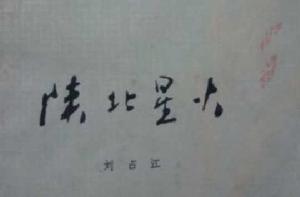 陕北星火
刘占江